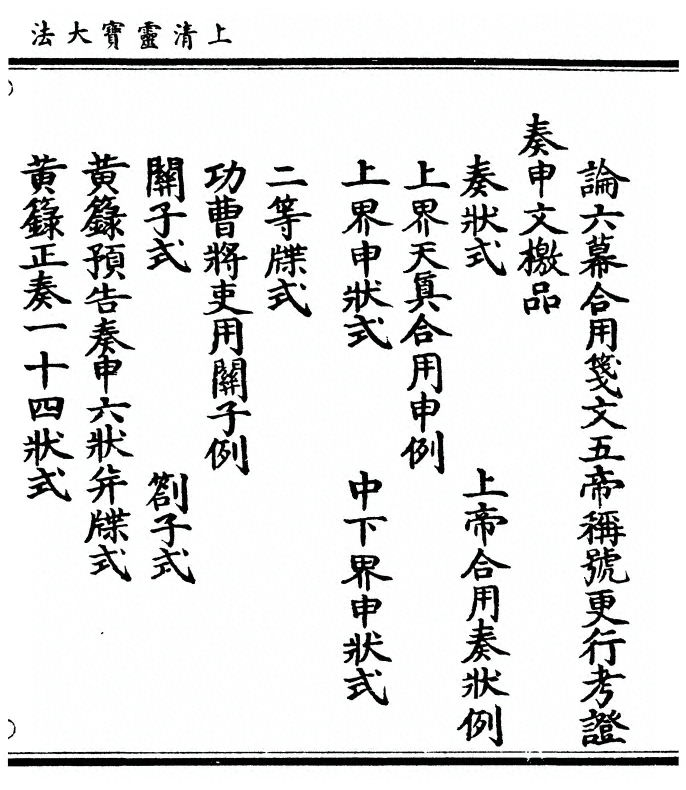 上清靈寶大法
論六幕合用箋文五帝稱號更行考證
奏申文檄品
奏狀式 上帝合用奏狀例
上界天眞合用申例
上界申狀式 中下界申狀式
二等牒式
功曹將吏用關子例
關子式 劄子式
黃籙預告奏申六狀并牒式
黃籙正奏一十四狀式